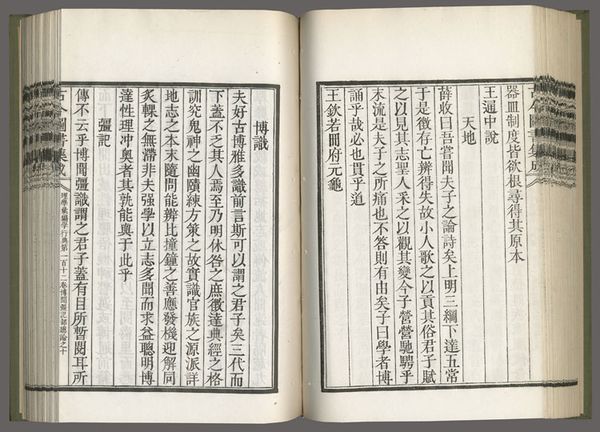 古今圖書集成
器皿制度皆欲根尋得其原本
王通中說
天地
薛收曰吾嘗聞夫子之論詩矣上明三綱下達五常
于是徵存亡辨得失故小人歌之以貢其俗君子賦
之以見其志聖人采之以觀其變今子營營馳騁乎
末流是夫子之所痛也不答則有由矣子曰學者博
誦乎哉必也貫乎道
王欽若冊府元龜
博識
夫好古博雅多識前言斯可以謂之君子矣三代而
下蓋不乏其人焉至乃明休咎之庶徵達典經之格
訓究鬼神之幽賾練方策之故實識官族之源派詳
地志之本末隨問能辨比撞鐘之善應發機迎解同
炙輠之無滯非夫强學以立志多聞而求益聰明博
達性理冲奧者其孰能與于此乎
彊記
傳不云乎博聞彊識謂之君子蓋有目所暫閱耳所
古今圖書集成 理學彙編學行典第一百十二卷博聞彊記部總論之十